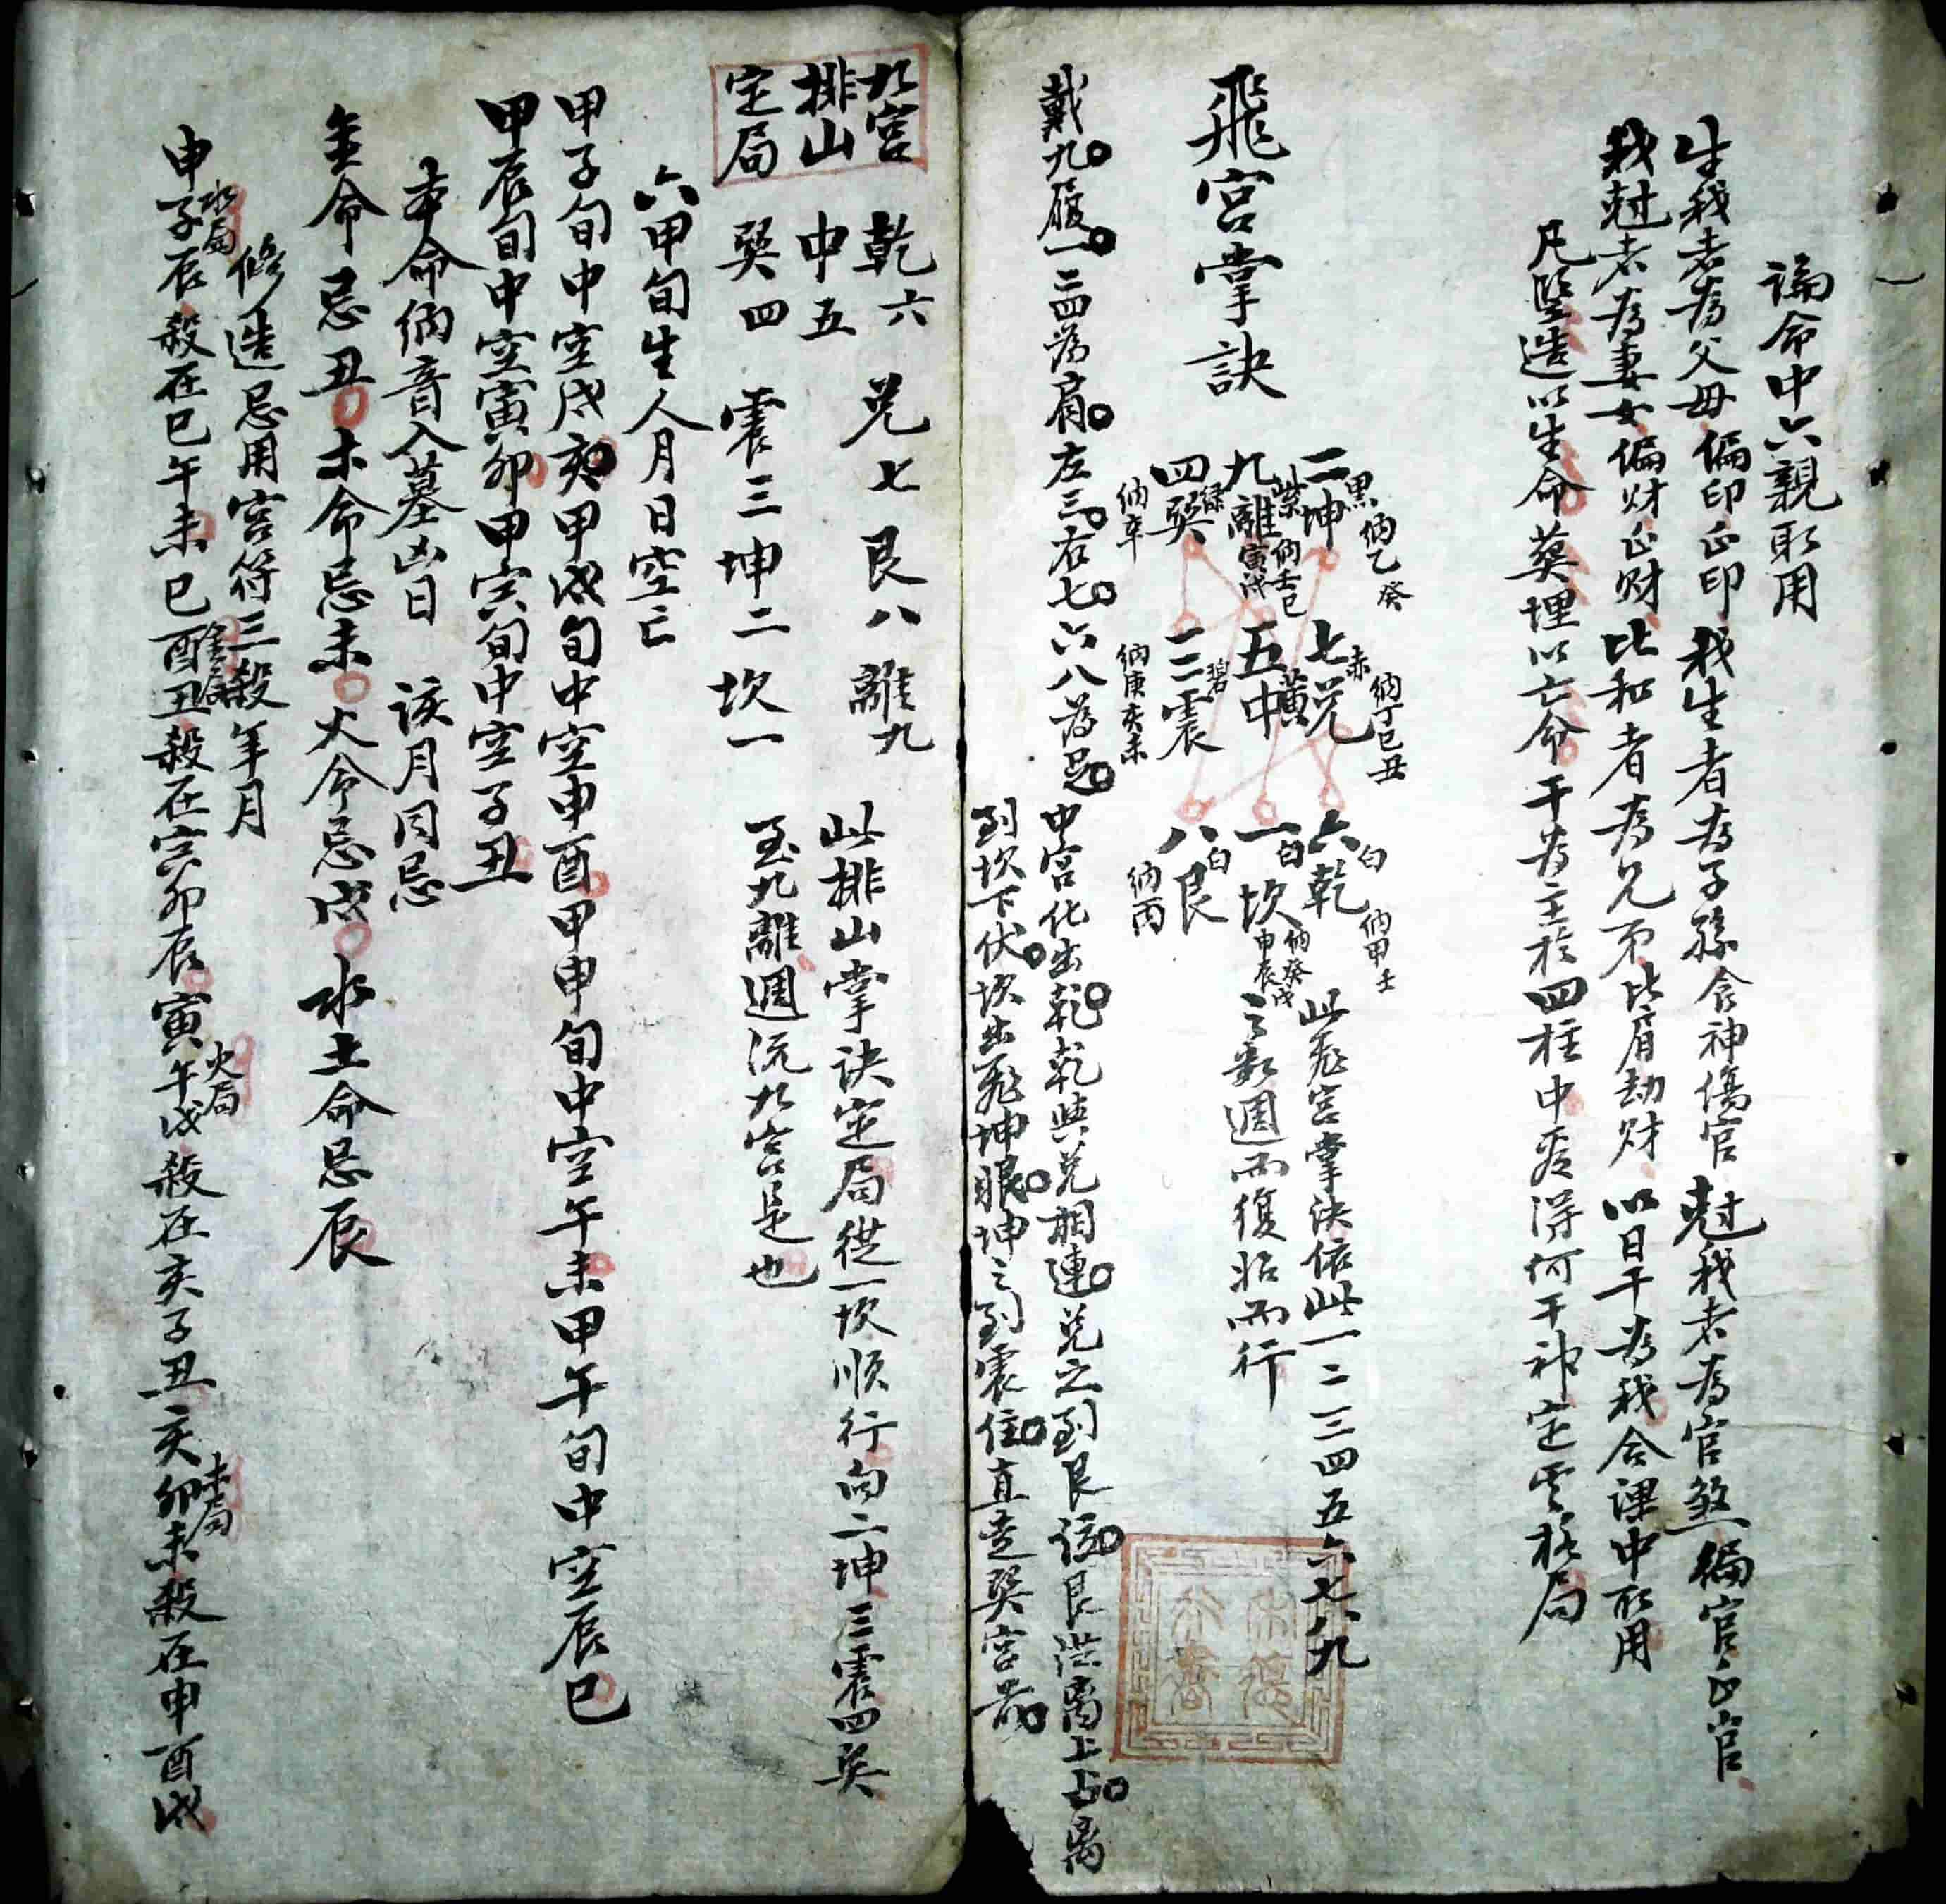 論命中六親取用
生我者為父母偏印正印 我生者為子孫食神傷官 尅我者為官煞偏官正官
我尅者為妻女偏財正財 比和者為兄弟比肩劫財 以日干為我合課中取用
凡竪造以生命 葬埋以亡命 干為主於四柱中看得何干神定雲格局
飛宮掌訣
二坤 黑 納乙癸
七兌 赤 納丁巳丑
六乾 白 納甲壬
九離 紫 納壬己寅戌
五中 黃
一坎 白 納癸戊申辰
四巽 綠 納辛
三震 碧 納庚亥未
八艮 白 納丙
此飛宮掌決依此一二三四五六七八九
之數週而復始而行
戴九履一二四為肩左三右七六八為足
中宮化出乾乾與兌相連兌之到艮位艮渋离上占离
到坎下伏坎出飛坤眼坤之到震住直走巽宮前
九宮
排山
定局
乾六 兌七 艮八 離九
中五
巽四 震三 坤二 坎一
此排山掌訣定局從一坎順行向二坤三震四巽
至九離週流九宮是也
六甲旬生人月日空亡
甲子旬中空戌亥甲戌旬中空申酉甲申旬中空午未甲午旬中空辰巳
甲辰旬中空寅卯甲寅旬中空子丑
本命納音入墓凶日 該月同忌
金命忌丑 木命忌未 火命忌戌 水土命忌辰
修造忌用宮符三殺年月
水局 金局 火局 木局
申子辰 殺在巳午未 巳酉丑殺在寅卯辰 寅午戌殺在亥子丑 亥卯未殺在申酉戌